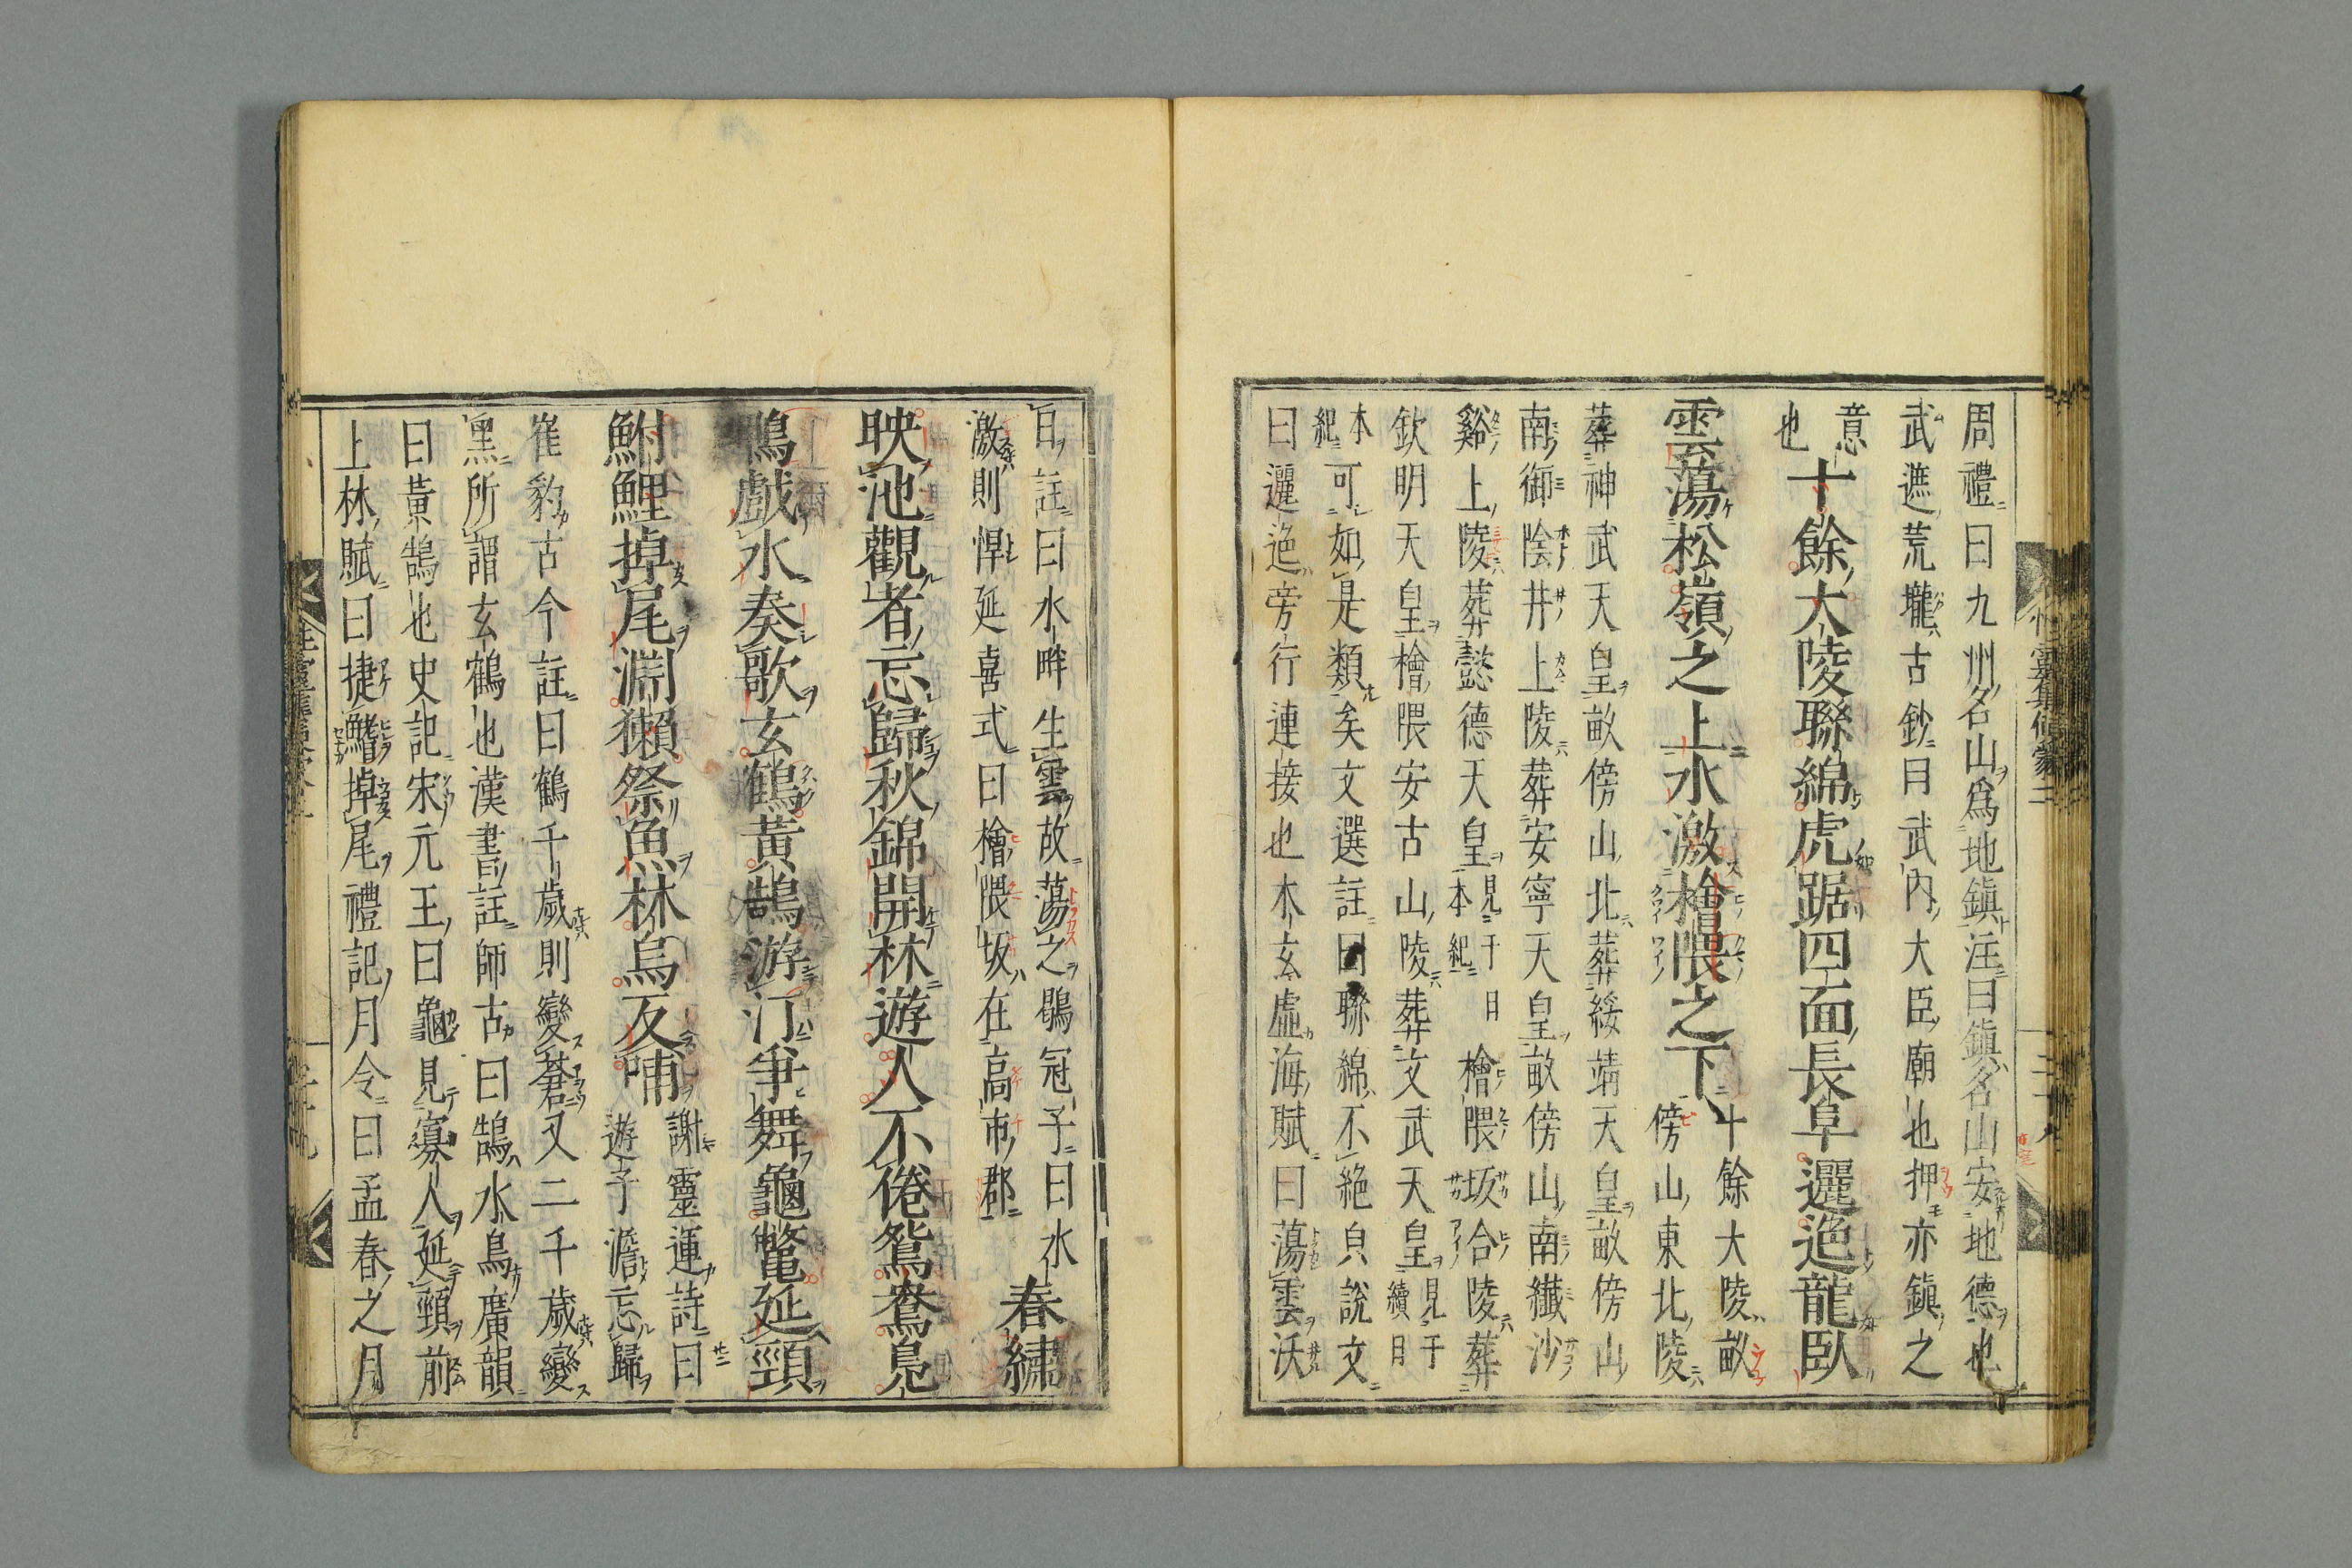 周禮曰九州名山爲地鎭注曰鎭名山安地德也
武遮荒壠古鈔曰武内大臣廟也押亦鎭之
意
也
十餘大陵聯綿虎踞四面長阜邐迤龍臥
雲蕩松嶺之上水激檜隈之下
十餘大陵畝
傍山東北陵
葬神武天皇畝傍山北葬綏靖天皇畝傍山
南御陰井上陵葬安寧天皇畝傍山南纖沙
谿上陵葬懿德天皇
見于日
本紀
檜隈坂合陵葬
欽明天皇檜隈安古山陵葬文武天皇
見于
續日
本
紀
可如是類矣文選註曰聯綿不絶皃說文
曰邐迤旁行連接也木玄虛海賦曰蕩雲沃
日註曰水畔生雲故蕩之鶡冠子曰水
激則悍延喜式曰檜隈坂在高市郡
春繡
映池觀者忘歸秋錦開林遊人不倦鴛鴦鳧
鴨戲水奏歌玄鶴黃鵠游汀爭舞龜鼈延頸
鮒鯉掉尾淵獺祭魚林烏反哺
謝靈運詩曰
遊子澹忘歸
崔豹古今註曰鶴千歲則變蒼又二千歲變
黑所謂玄鶴也漢書註師古曰鵠水鳥廣韻
曰黃鵠也史記宋元王曰龜見寡人延頸前
上林賦曰捷鰭掉尾禮記月令曰孟春之月